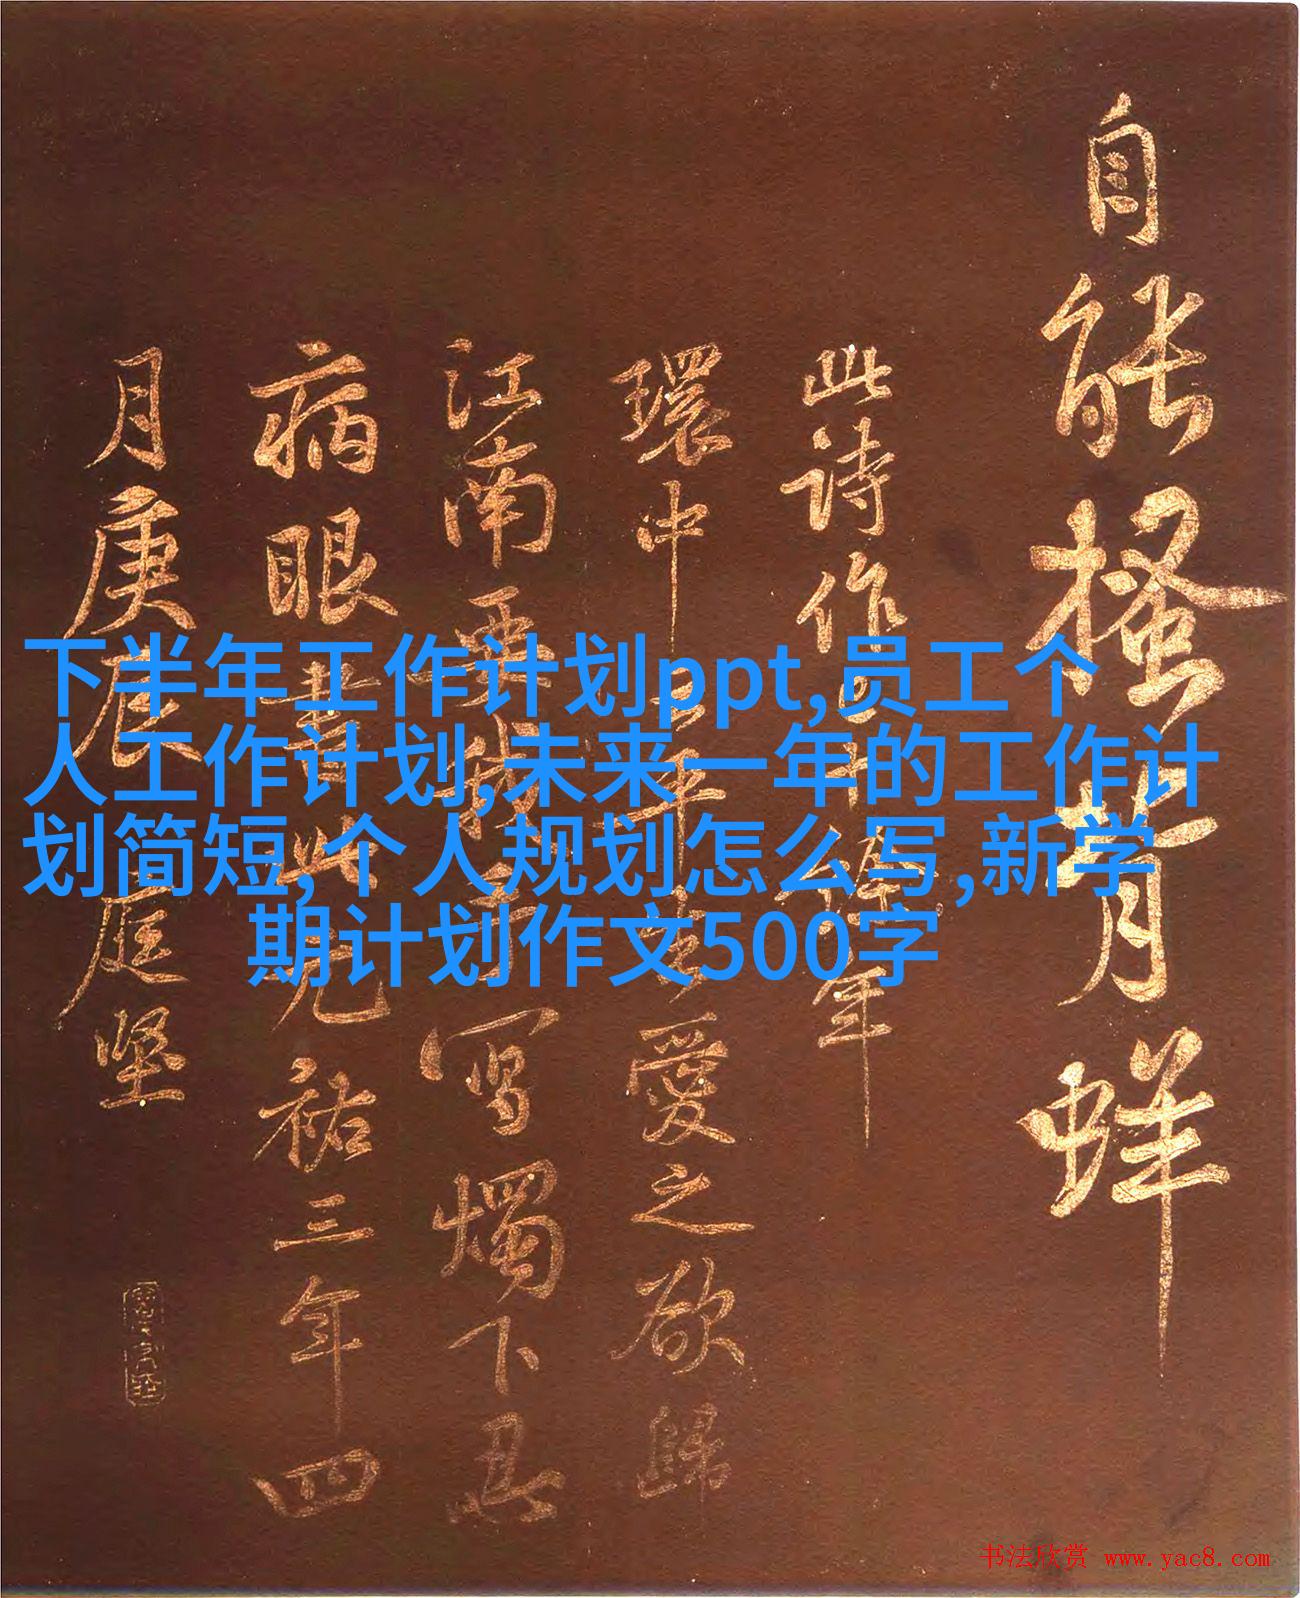 自能搔背蛘
此詩作
年
環中
愛之欲歸
江南
寫燭下忍
病眼書此元祐三年四
月庚辰庭堅
下半年工作计划ppt,员工个
人工作计划,未来一年的工作计
划简短,个人规划怎么写,新学
期计划作文500字
书法欣赏 www.yac8.com